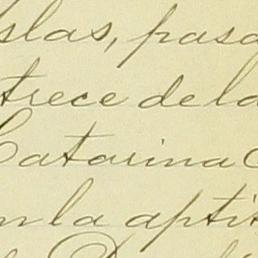 slas, pasa
trece de la
Catarina
n la aptit